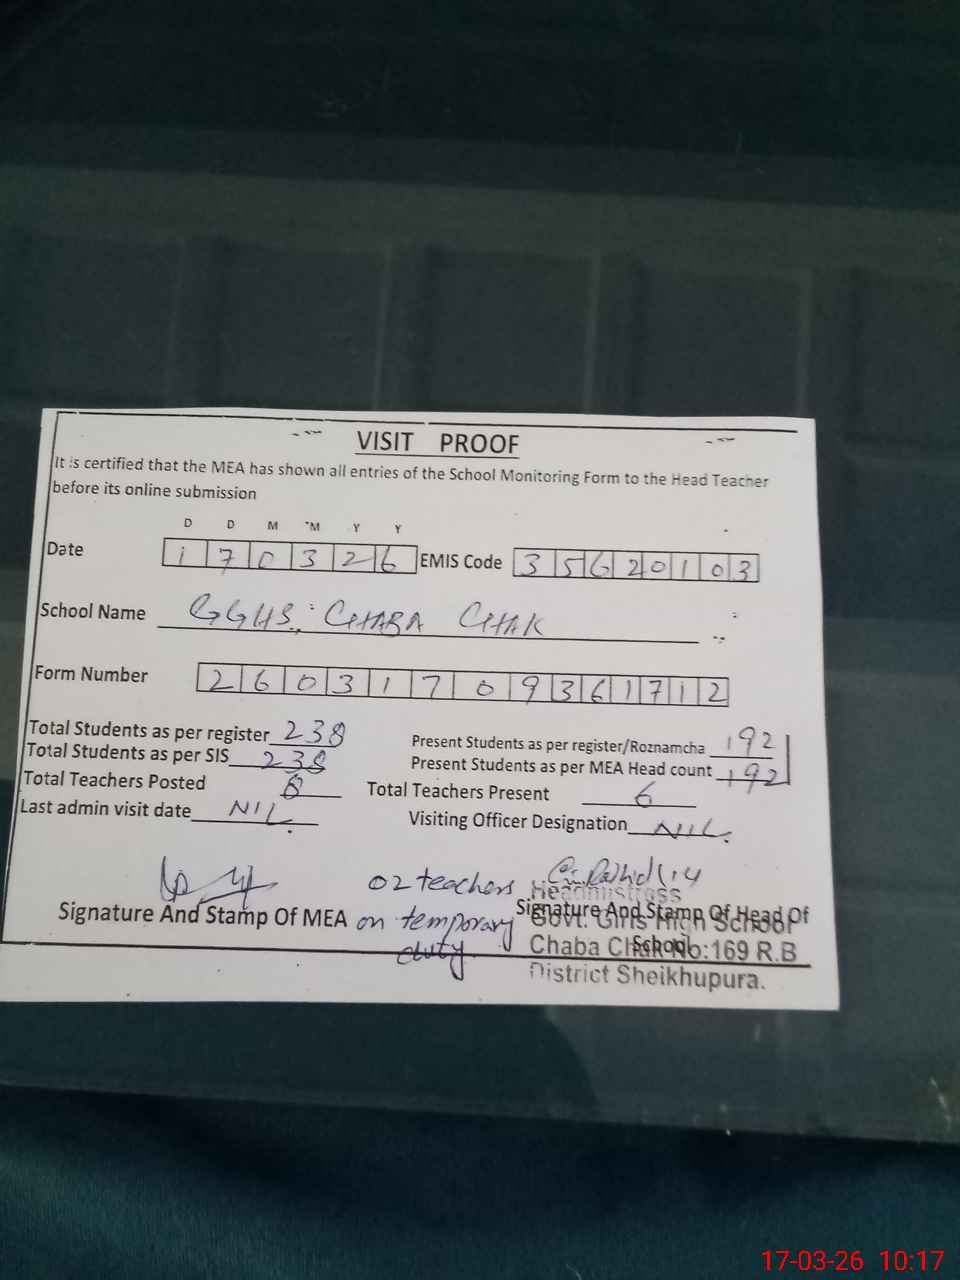 VISIT PROOF
It is certified that the MEA has shown all entries of the School Monitoring Form to the Head Teacher
before its online submission
D D M M Y Y
Date 170326 EMIS Code 35620103
School Name GGHS, CHABA CHAK
Form Number 26031709361712
Total Students as per register 238 Present Students as per register/Roznamcha 192
Total Students as per SIS 238 Present Students as per MEA Head count 192
Total Teachers Posted 8 Total Teachers Present 6
Last admin visit date NIL. Visiting Officer Designation NIL.
02 teachers
on temporary
duty
Signature And Stamp Of MEA
Signature And Stamp Of Head Of
School
Headmistress
Govt. Girls High School
Chaba Chak No:169 R.B
District Sheikhupura.
17-03-26 10:17